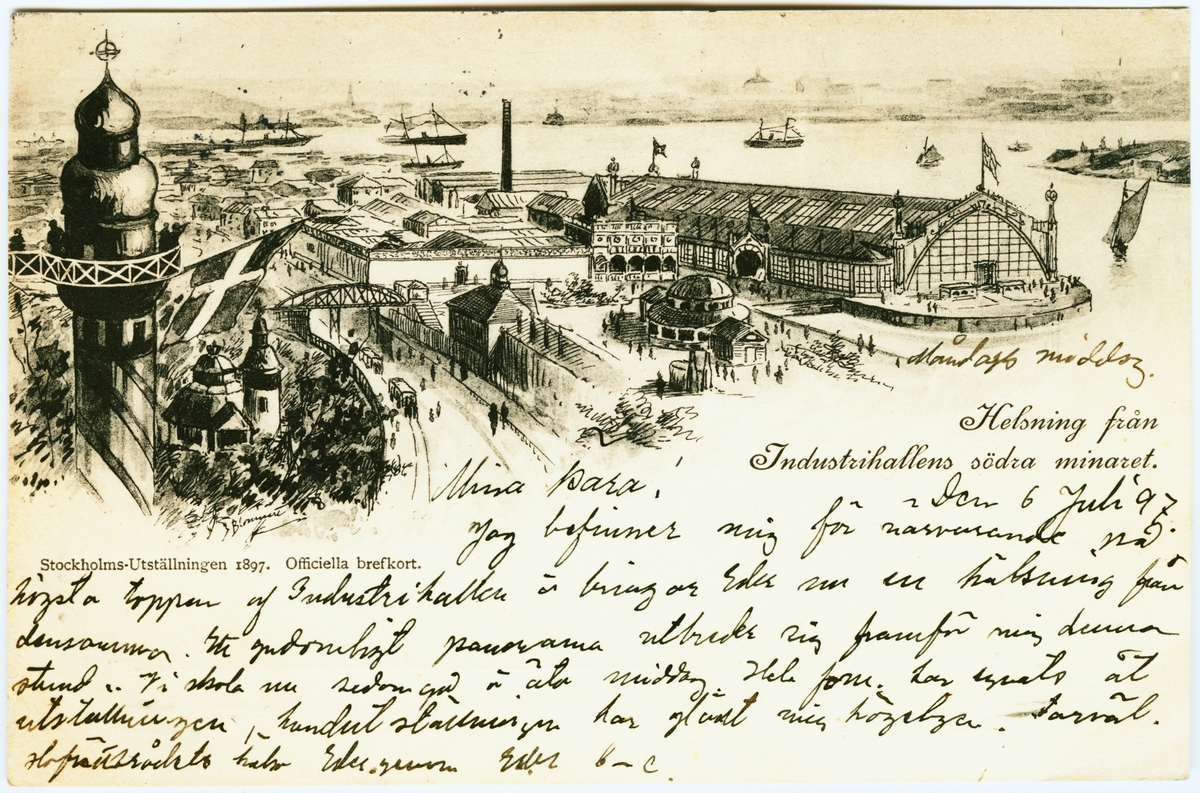 Måndags middag.
Helsning från
Industrihallens södra minaret.
Den 6 Juli 97.
Mina Kära!
Jag befinner mig för närvarande på
Stockholms-Utställningen 1897. Officiella brefkort.
högsta toppen af Industrihallen å bringar Eder nu en hälsning från
densamma. Ett gudomligt panorama utbreder sig framför mig denna
stund. Vi skola nu ned å äta middag. Hela förm. har egnats åt
utställningen, handutställningen har glädt mig högeligen. Farväl.
helsar Eder genom Eder